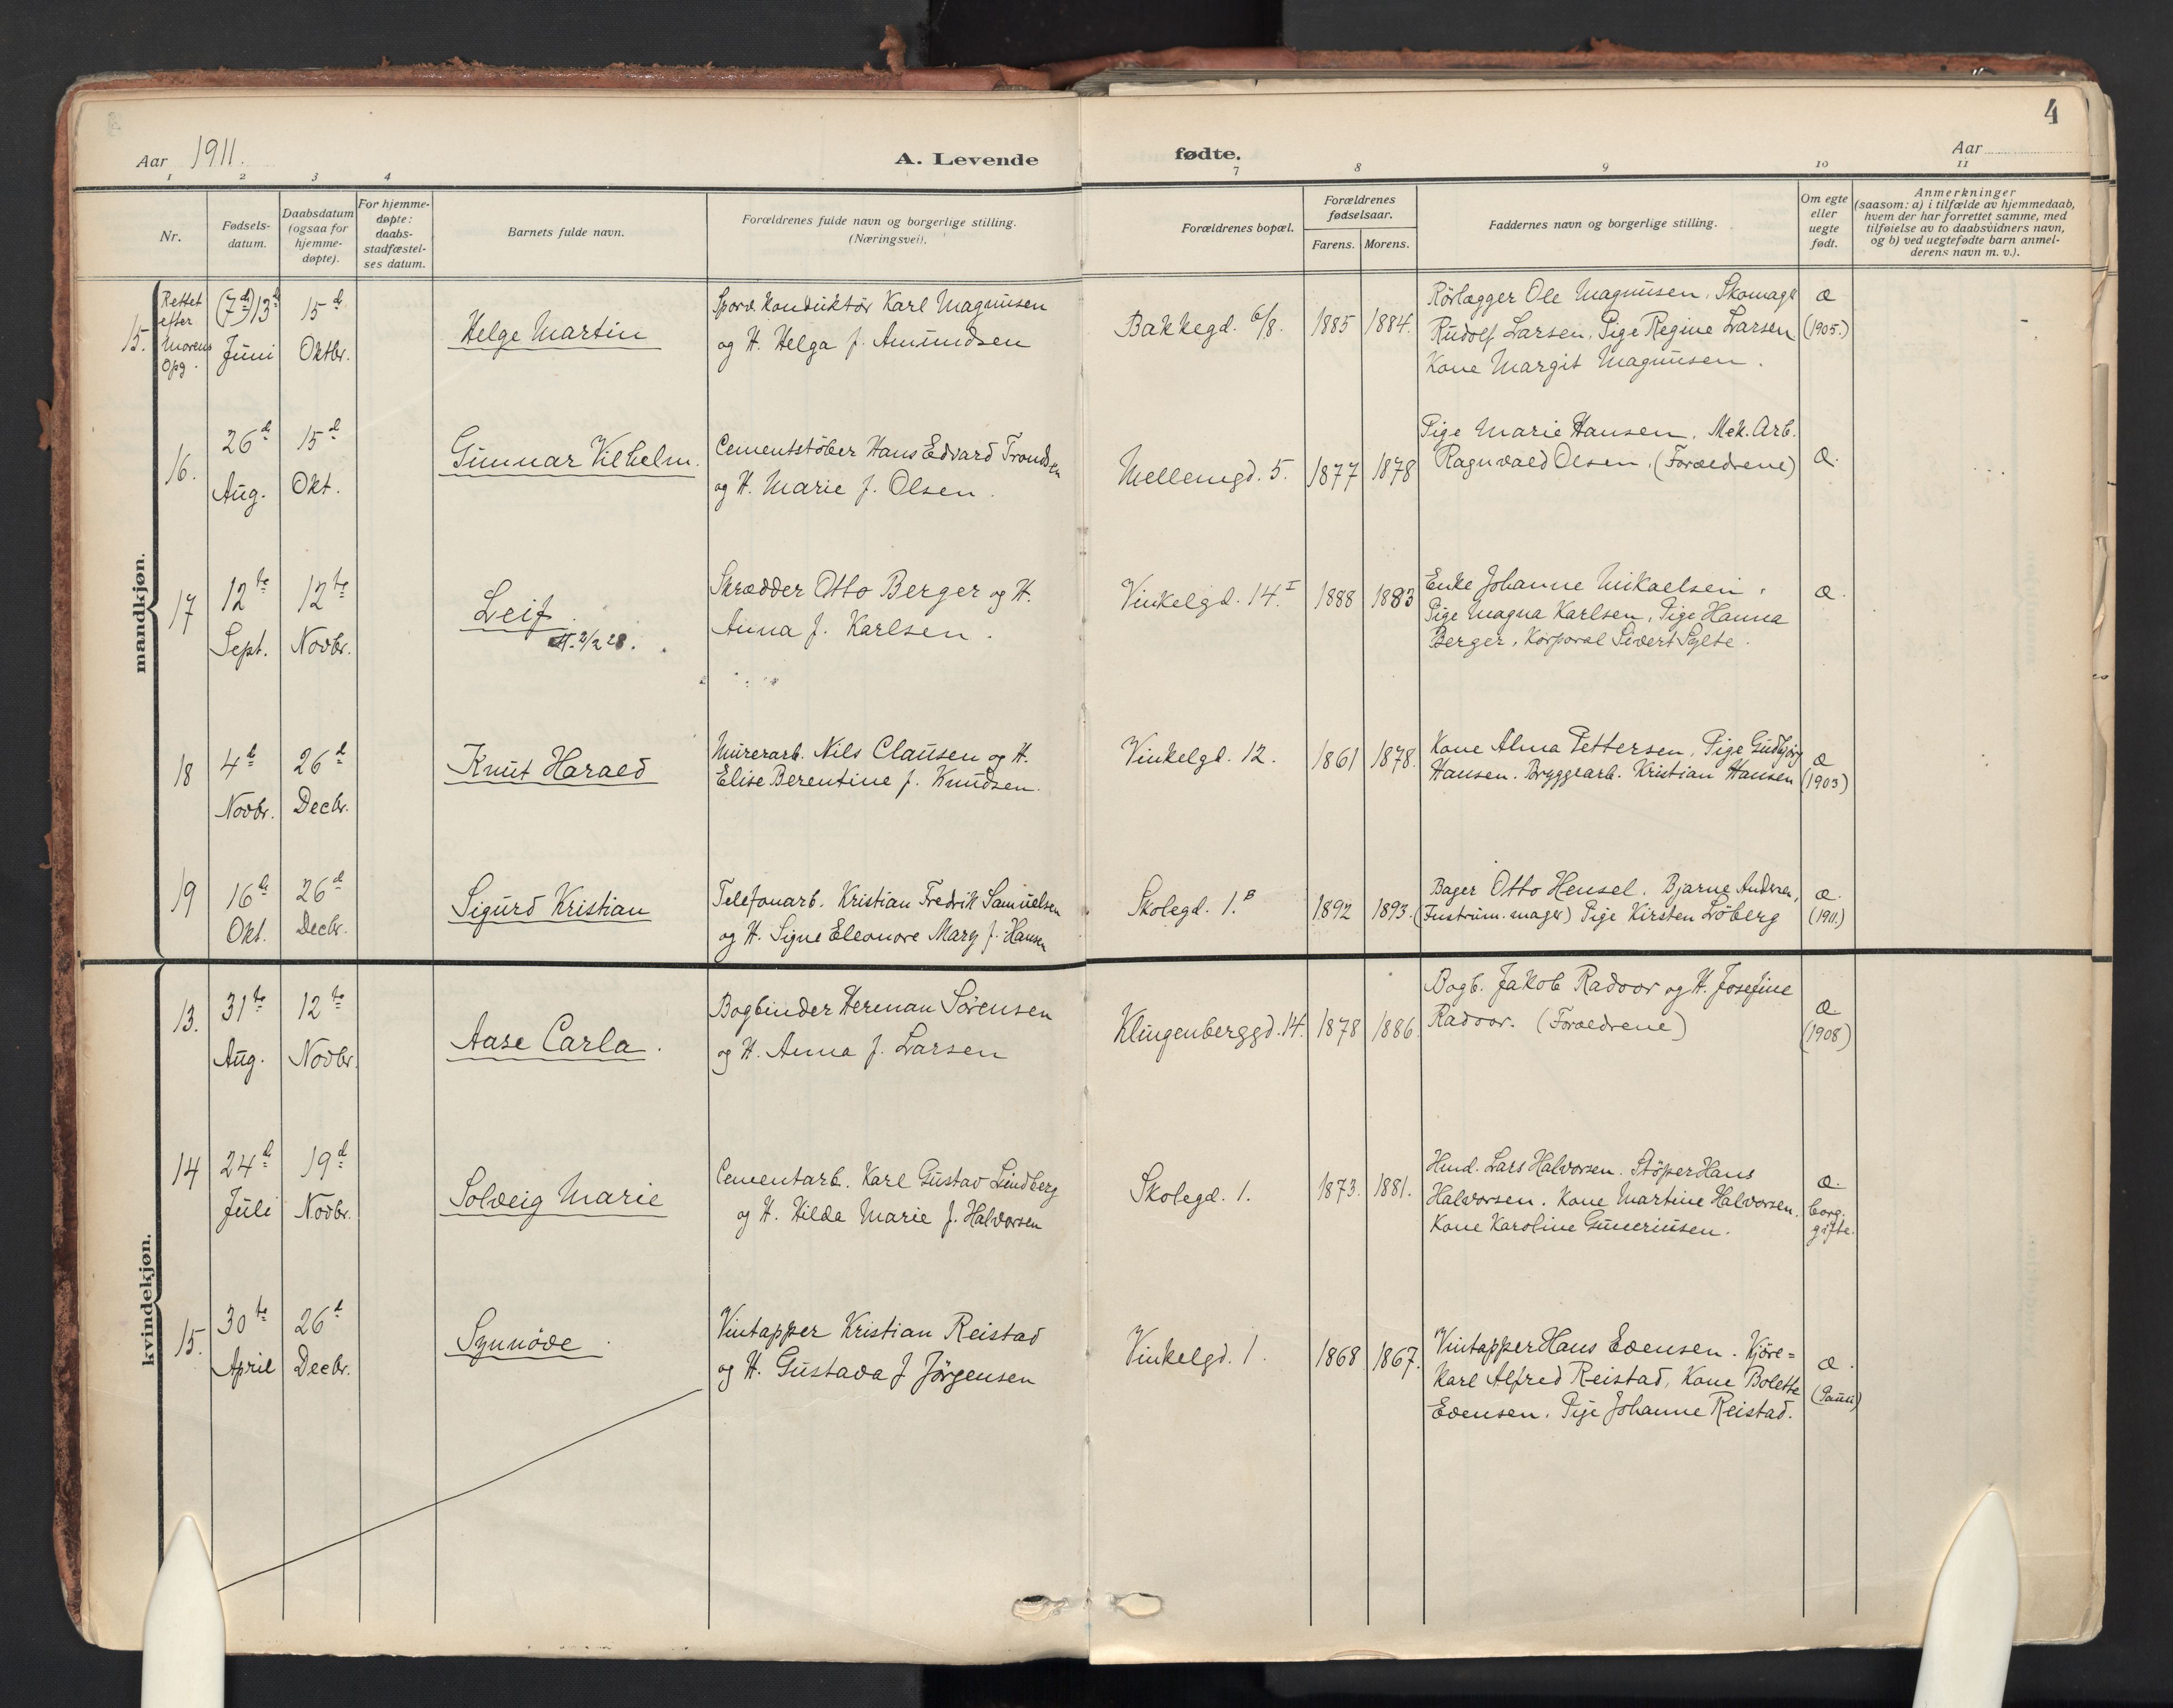 4
Aar 1911.
A. Levende
fødte.
Aar
1 2 3 4
7 8 9 10 11
Nr.
Fødsels-
datum.
Daabsdatum
(ogsaa for
hjemme-
døpte).
For hjemme-
døpte:
daabs-
stadfæstel-
ses datum.
Barnets fulde navn.
Forældrenes fulde navn og borgerlige stilling.
(Næringsvei).
Forældrenes bopæl.
Forældrenes
fødselsaar.
Farens. Morens.
Faddernes navn og borgerlige stilling.
Om egte
eller
uegte
født.
Anmerkninger
(saasom: a) i tilfælde av hjemmedaab,
hvem der har forrettet samme, med
tilføielse av to daabsvidners navn,
og b) ved uegtefødte barn anmel-
derens navn m. v.).
mandkjøn.
15.
Rettet
efter
Morens
Opg.
(7d) 13d
Juni
15d
Oktbr.
Helge Martin
Sporv. Konduktör Karl Magnusen
og H. Helga f. Amundsen
Bakkegd. 6/8.
1885 1884.
Rörlægger Ole Magnusen. Skomager
Rudolf Larsen. Pige Regine Larsen
Kone Margit Magnusen.
æ
(1905.)
16.
26d
Aug.
15d
Okt.
Gunnar Vilhelm.
Cementstöber Hans Edvard Trondsen
og H. Marie f. Olsen.
Mellemgd. 5.
1877 1878
Pige Marie Hansen. Mek. Arb.
Ragnvald Olsen. (Forældrene)
æ.
17
12te
Sept.
12te
Novbr.
Leif.
2/2 28.
Skrædder Otto Berger og H.
Anna f. Karlsen.
Vinkelgd. 14.I
1888 1883
Enke Johanne Mikaelsen.
Pige Magna Karlsen. Pige Hanna
Berger. Korporal Sivert Sylte.
æ.
18
4d
Novbr.
26d
Decbr.
Knut Harald
Murerarb. Nils Clausen og H.
Elise Berentine f. Knudsen.
Vinkelgd. 12.
1861 1878.
Kone Alma Pettersen. Pige Gudbjörg
Hansen. Bryggearb. Kristian Hansen
æ
(1903)
19
16d
Okt.
26d
Decbr.
Sigurd Kristian
Telefonarb. Kristian Fredrik Samuelsen
og H. Signe Eleonore Mary f. Hansen
Skolegd. 1.B
1892 1893.
Bager Otto Hensel. Bjarne Andersen,
(Instrum. mager) Pige Kirsten Löberg
æ.
(1911.)
kvindekjøn.
13.
31te
Aug.
12te
Novbr.
Aase Carla.
Bogbinder Herman Sörensen
og H. Anna f. Larsen
Klingenberggd. 14.
1878 1886
Bogb. Jakob Radoor og H. Josefine
Radoor. (Forældrene)
æ
(1908)
14
24d
Juli
19d
Novbr.
Solveig Marie
Cementarb. Karl Gustav Lindberg
og H. Hilda Marie f. Halvorsen
Skolegd. 1.
1873. 1881.
Hmd. Lars Halvorsen. Stöper Hans
Halvorsen. Kone Martine Halvorsen.
Kone Karoline Guneriusen.
æ.
borg.
gifte.
15.
30te
April
26d
Decbr.
Synnöve.
Vintapper Kristian Reistad
og H. Gustava f Jörgensen
Vinkelgd. 1.
1868 1867.
Vintapper Hans Evensen. Kjöre-
karl Alfred Reistad, Kone Bolette
Evensen. Pige Johanne Reistad.
æ.